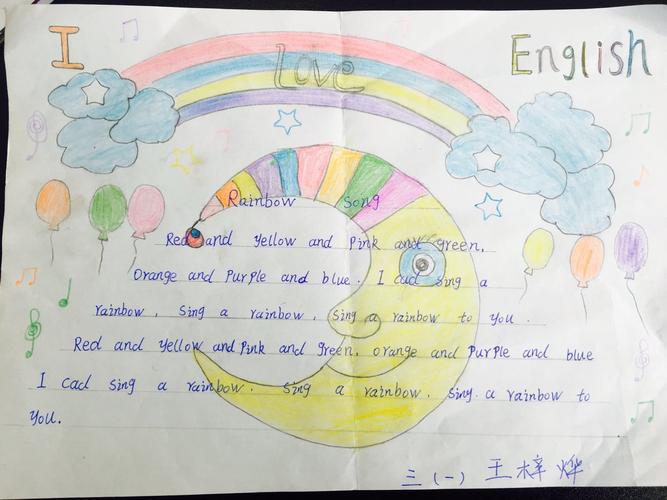 I Love English
Rainbow Song
Red and yellow and Pink and green,
Orange and Purple and blue. I cad sing a
rainbow, Sing a rainbow, Sing a rainbow to you.
Red and yellow and Pink and green, orange and Purple and blue
I cad sing a rainbow. Sing a rainbow, Sing a rainbow to
you.
三(一) 王梓烨